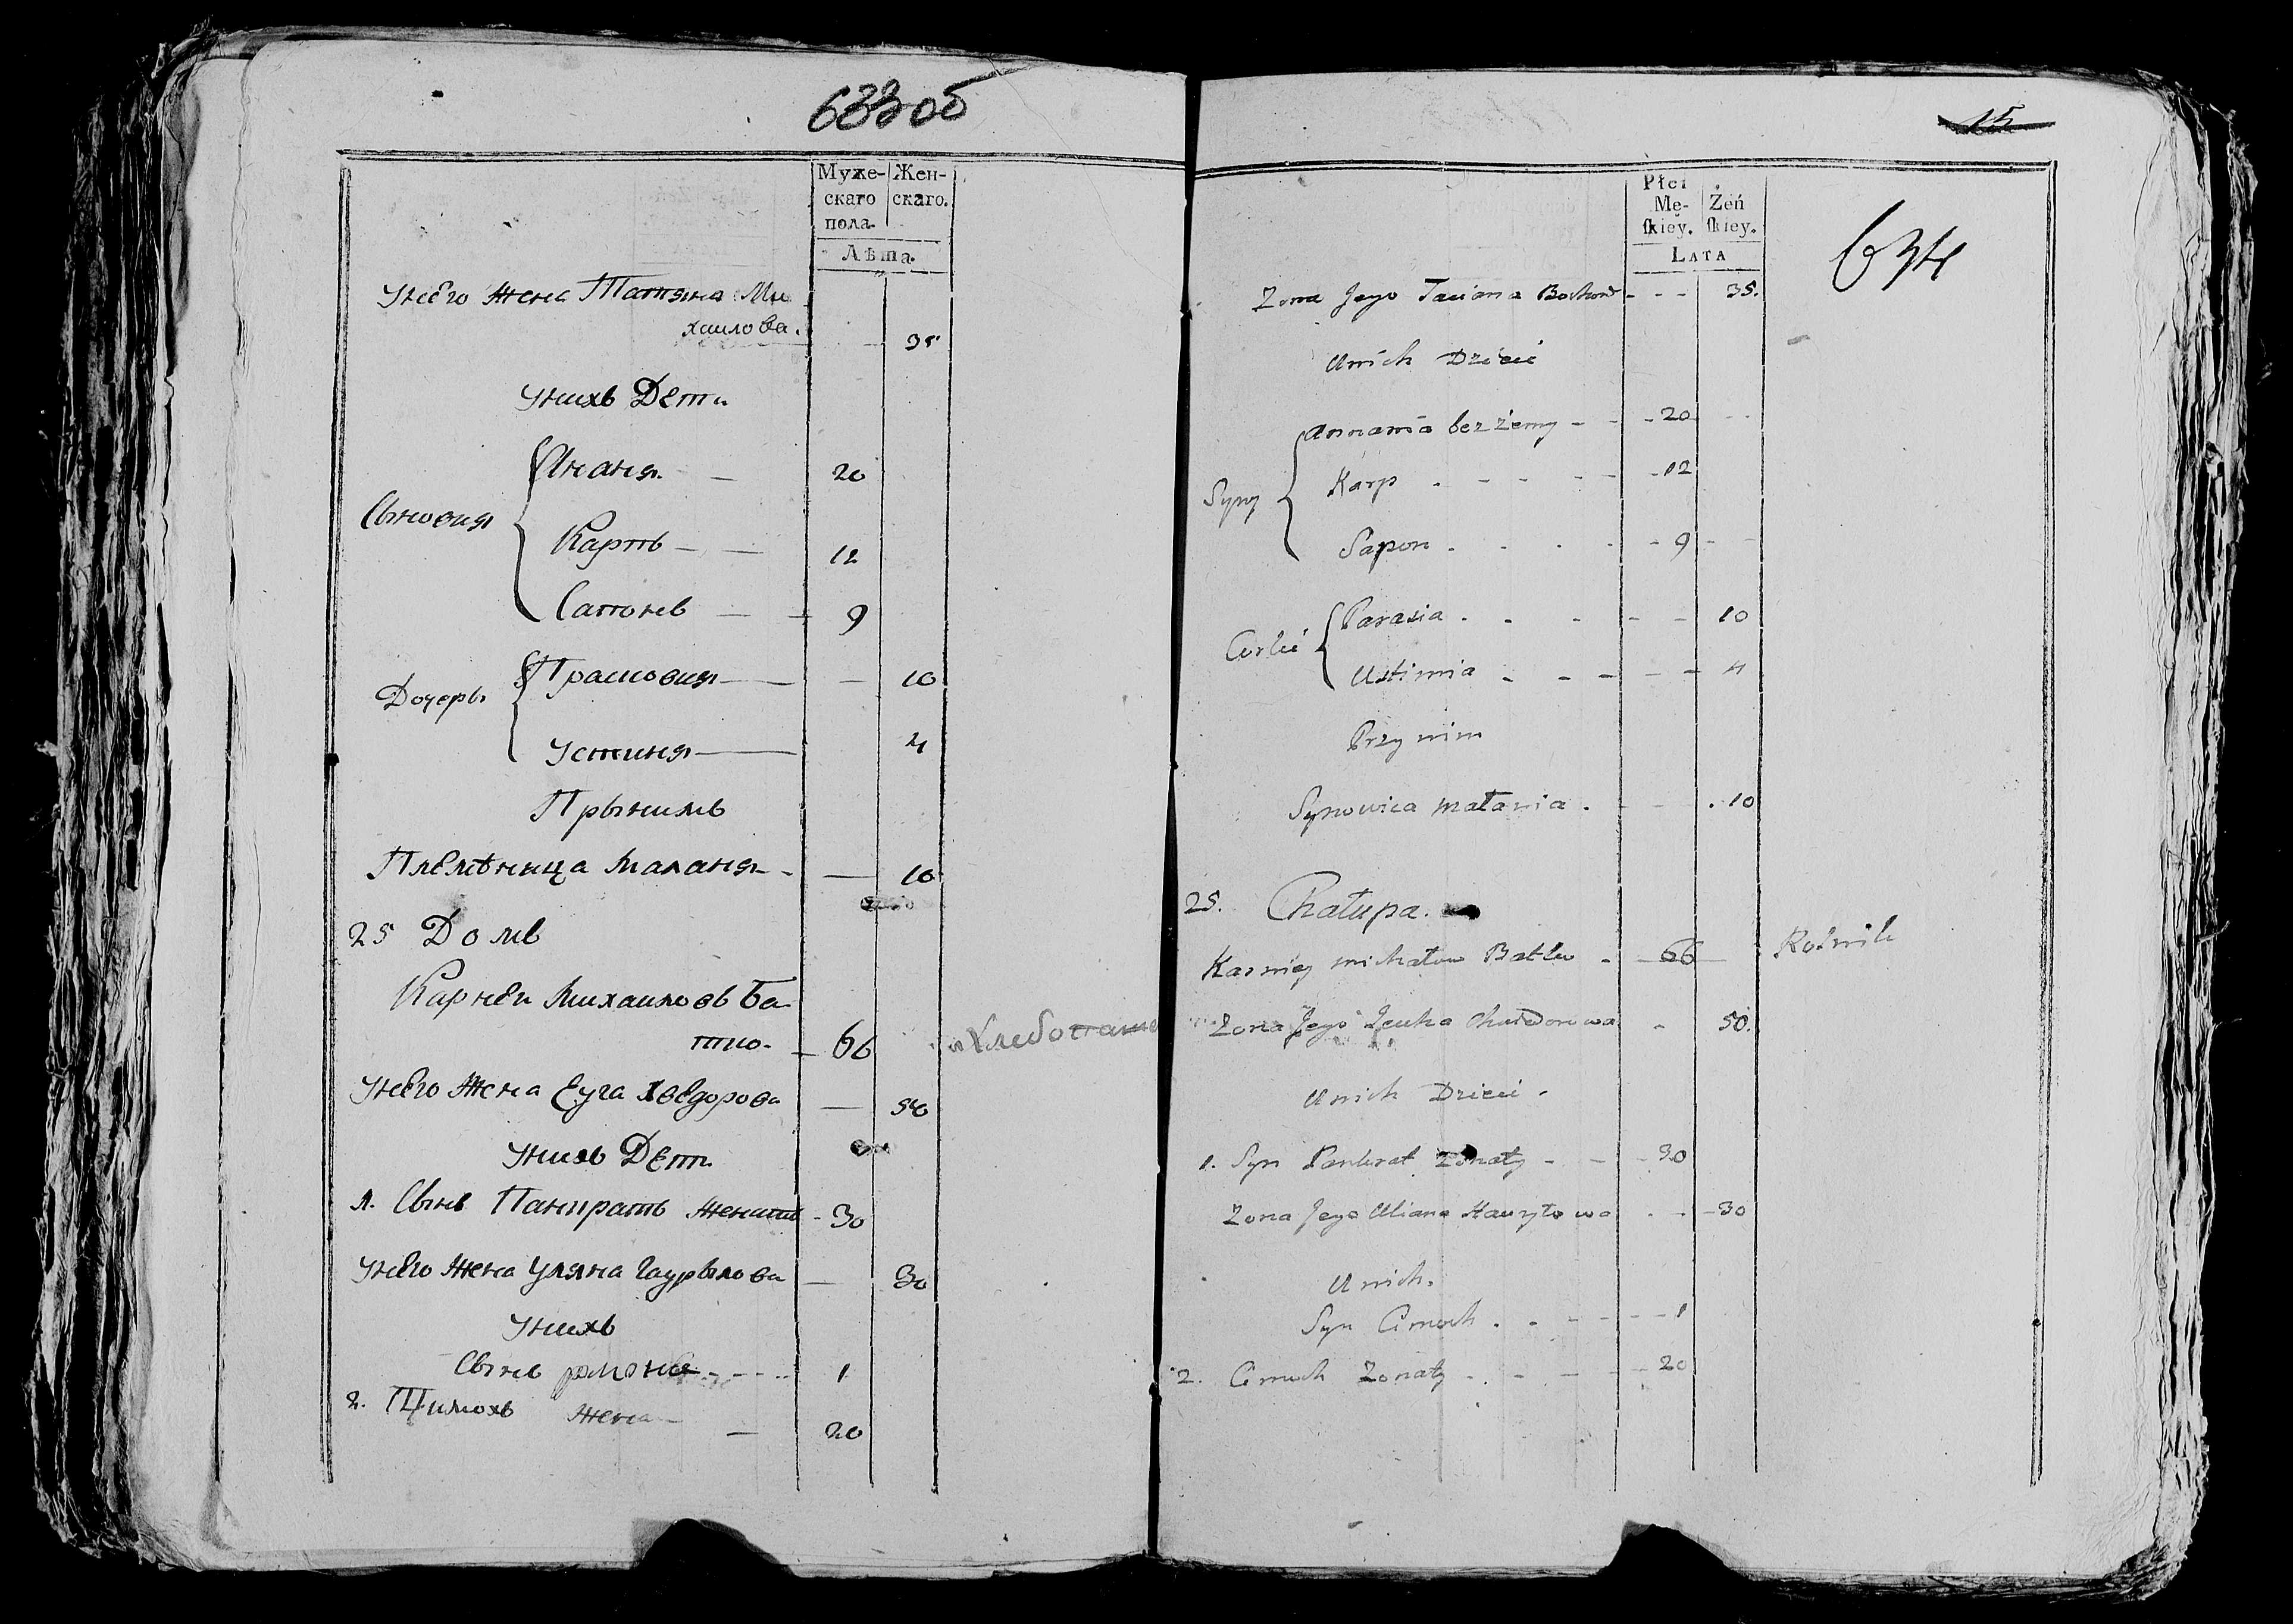 633об
Муже- Жен-
скаго скаго.
пола.
Лѣта.
Унего Жена Татяна Ми
хаилова. 35
Унихъ Дети
Сыновия
Ананя 20
Карпъ 12
Сапонъ 9
Дочеры
Прасковия 10
Устиня 4
Прынимъ
Племѣница Маланя 10
25 Домъ
Карнѣи Михаиловъ Ба
тю. 66 Хлебопаше
Унего Жена Еуга Хведорова 50
Унихъ Дети
1. Сынъ Панкратъ Женатъ 30
Унего Жена Уляна Гаурылова 30
Унихъ
Сынъ 1
2. Цимохъ Жена 20
15
634
Płci
Mę- Żeń
skiey. skiey.
LATA
Zona Jego Taciana 35.
Unich Dzieci
Syny
Annania bez żeny 20
Karp 12
Sapon 9
Corki
Parasia 10
Ustinia 4
Przy nim
Synowica Małania 10
25. Chałupa.
Karniey Michałow 66 Rolnik
Zona Jego Jeuha Chwedorowa 50.
Unich Dzieci
1. Syn Pankrat Zonaty 30
Zona Jego Uliana Hauryłowa 30
Unich.
Syn Cimoch 1
2. Cimoch Zonaty 20